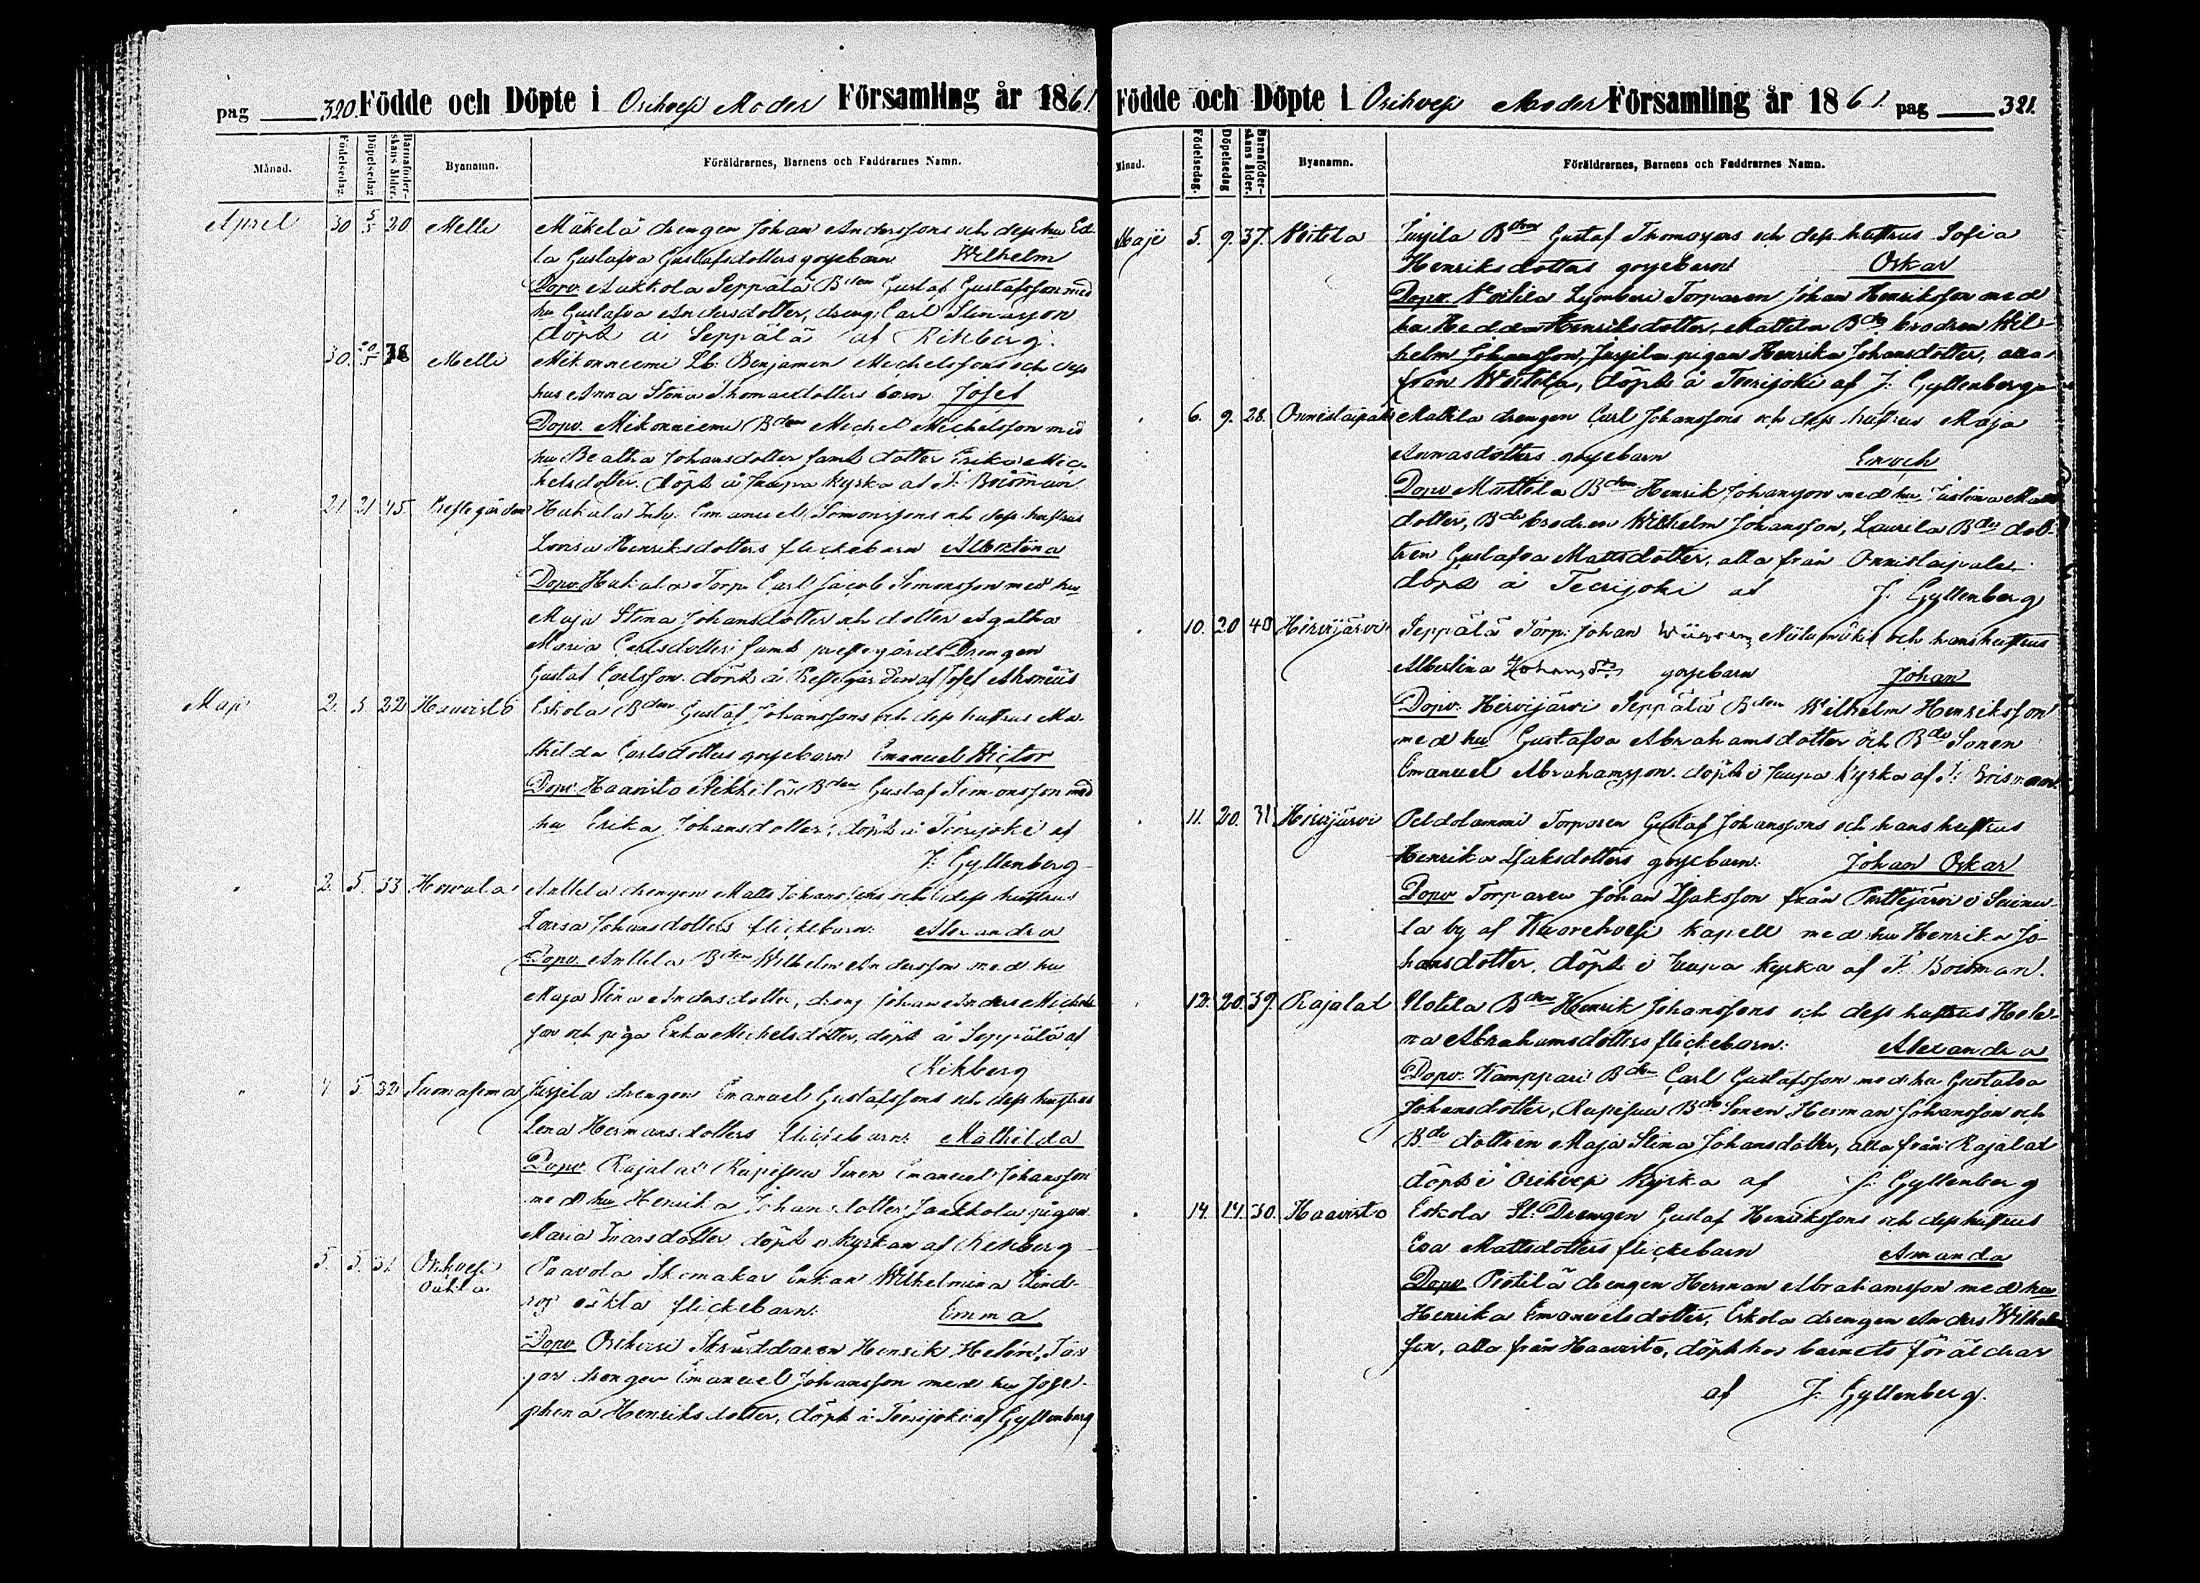 pag 320. Födde och Döpte i Orihvesi Moder Församling år 1861.
Månad. Födelsedag. Döpelsedag Barnaföder-skans ålder. Byanamn. Föräldrarnes, Barnens och Faddrarnes Namn.
April 30 5/5 20 Melli Mäkelä drengen Johan Anderssons och dess hu Ed-
la Gustafva Gustafsdotters gossebarn Wilhelm
Dopv. Aukkola Seppälä Bden Gustaf Gustafsson med
hu Gustafva Andersdotter, dreng Carl
döpt å Seppälä af Rikberg.
30. 20/5 Melli Mikonniemi Benjamin Michelssons och dess
hus Anna Stina Thomasdotters barn Josef
Dopv. Mikonniemi Bden Michel Michelsson med
hu Beatha Johansdotter samt dotter Erika Mic-
helsdotter, döpt i Juupa kyrka af F. Boisman
" 21 21 45 Prestegården Hakala Inh. Emanuel Simonssons och dess hustrus
Lovisa Henriksdotters flickebarn Albertina
Dopv. Hakala Torp. Carl Jacob Simonsson med hu
Maja Stina Johansdotter och dotter Agatha
Maria Carlsdotter samt prestegårds Drengen
Gustaf Carlsson, döpt å Prestegården af Josef
Maji 2. 5 22 Haavisto Eskola Bden Gustaf Johanssons och dess hustrus Ma-
thilda Carlsdotters gossebarn Emanuel Victor
Dopv. Haavisto Bden Gustaf Simonsson med
hu Erika Johansdotter, döpt å Teerijoki af
J. Gyllenberg
" 2. 5. 33 Anttila drengen Matts Johanssons och dess hustrus
Lovisa Johansdotters flickebarn Alexandra
Dopv. Anttila Bden Wilhelm Andersson med hu
Maja Stina Andersdotter, dreng Johan Anders Michels-
son och piga Erika Michelsdotter, döpt å Seppälä af
Rikberg
" 4 5. 32 Suomasema Jussila drengen Emanuel Gustafssons och dess hustrus
Lena Hermansdotters flickebarn Mathilda
Dopv. Rajalat Rupisuu Sonen Emanuel Johansson
med hu Henrika Johansdotter, Jaakkola pigan
Maria Ivarsdotter döpt i kyrkan af Rikberg
5. 5. 31. Orihvesi Paavola Skomakar Enkan Wilhelmina Lind-
oäkta flickebarn Emma
Dopv. Orihvesi Skräddaren Henrik Helén,
drengen Emanuel Johansson med hu Jose-
phina Henriksdotter, döpt å Teerijoki af Gyllenberg
Födde och Döpte i Orihvesi Moder Församling år 1861. pag 321.
Månad. Födelsedag. Döpelsedag Barnaföder-skans ålder. Byanamn. Föräldrarnes, Barnens och Faddrarnes Namn.
Maji 5. 9. 37. Voitila Jussila Bden Gustaf Thomassons och dess hustrus Sofia
Henriksdotters gossebarn Oskar
Dopv. Voitila Torparen Johan Henriksson med
hu Hedda Henriksdotter, Mattila Bde brodren Wil-
helm Johansson, Jussila pigan Henrika Johansdotter, alla
från Woitila, döpt å Teerijoki af J. Gyllenberg
" 6. 9. 28. Onnistaipale Mattila drengen Carl Johanssons och dess hustrus Maja
Annasdotters gossebarn Enoch
Dopv. Mattila Bden Henrik Johansson med hu Justina Matts-
dotter, Bde brodren Wilhelm Johansson, Laurila Bde dot-
tren Gustafva Mattsdotter, alla från Onnistaipale
döpt å Teerijoki af J. Gyllenberg
" 10. 20 40 Hirvijärvi Seppälä Torp. Johan och hans hustrus
Albertina gossebarn Johan
Dopv. Hirvijärvi Seppälä Bden Wilhelm Henriksson
med hu Gustafva Abrahamsdotter och Bde Sonen
Emanuel Abrahamsson, döpt i Juupa kyrka af F. Boisman.
" 11. 20. 31 Hirvijärvi Peldolammi Torparen Gustaf Johanssons och hans hustrus
Henrika Isaksdotters gossebarn. Johan Oskar
Dopv Torparen Johan Isaksson från i
la by af Kuorehvesi kapell med hu Henrika Jo-
hansdotter, döpt i Juupa kyrka af F. Boisman.
" 12. 20. 39. Rajalat Ulotila Bden Henrik Johanssons och dess hustrus Hele-
na Abrahamsdotters flickebarn. Alexandra
Dopv. Kamppari Bden Carl Gustafsson med hu Gustafva
Johansdotter, Rupisuu Bde Sonen Herman Johansson och
Bde dottren Maja Stina Johansdotter, alla från Rajalat
döpt i Orihvesi kyrka af J. Gyllenberg
" 14. 14. 30. Haavisto Eskola St. Drengen Gustaf Henrikssons och dess hustrus
Eva Mattsdotters flickebarn Amanda
Dopv drengen Herman Abrahamsson med hu
Henrika Emanuelsdotter, Eskola drengen Anders Wilhelms-
son, alla från Haavisto, döpt hos barnets föräldrar
af J. Gyllenberg.